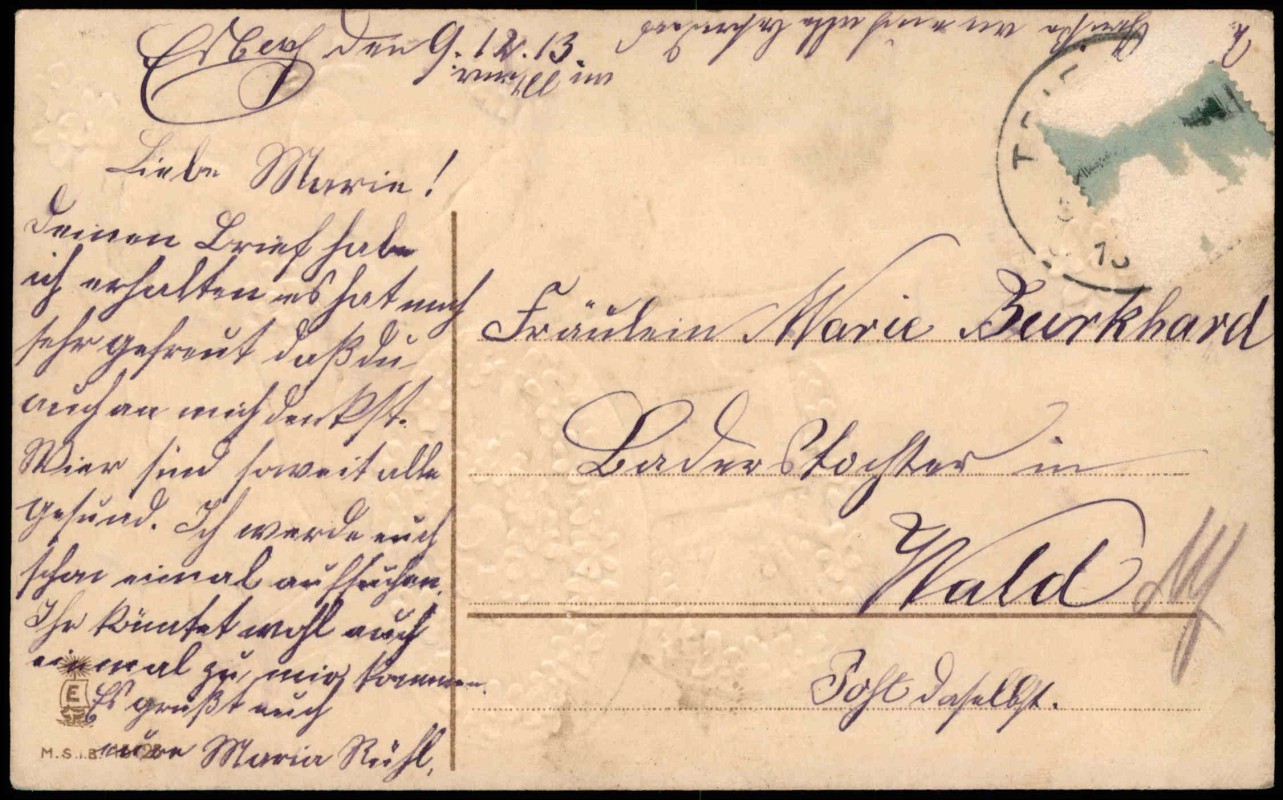 Esbach den 9.12.13.
Liebe Marie!
Deinen Brief habe
ich erhalten es hat mich
sehr gefreut daß du
auch an mich denkst.
Wier sind soweit alle
gesund. Ich werde euch
schon einmal aufsuchen.
Ihr könntet wohl auch
einmal zu mir kommen.
Es grüßt euch
eure Maria Rühl.
Fräulein Marie Burkhard
Baderstochter in
Wald
Post daselbst.
E
M.S.i.B.